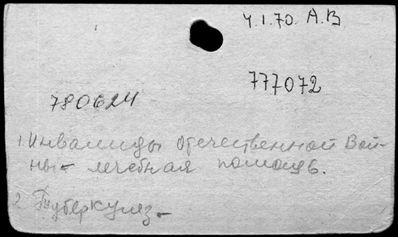 4.I.70. А.В
777072
780624
1 Инвалиды Отечественной Вой-
ны - лечебная помощь.
2 Туберкулез. -